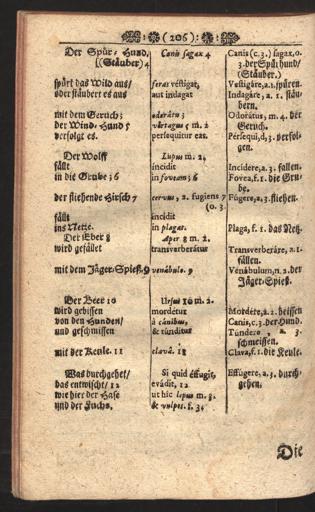 (206)
Der Spür-Hund,
(Stäuber) 4
spürt das Wild aus/
oder stäubert es aus
mit dem Geruch;
der Wind-Hund 5
verfolgt es.
Der Wolff
fällt
in die Grube 6
der fliehende Hirsch 7
fällt
ins Netze.
Der Eber 8
wird gefället
mit dem Jäger-Spieß. 9
Der Beer 10
wird gebissen
von den Hunden/
und geschmissen
mit der Keule. 11
Was durchgehet/
das entwischt/ 12
wie hier der Hase
und der Fuchs.
Canis sagax 4
feras vestigat,
aut indagat
odorátu;
vértagus 5 m. 2
persequitur eas.
Lupus m. 2,
íncidit
in foveam; 6
cervus, 2. fugiens 7
(o. 3.
íncidit
in plagas.
Aper 8 m. 2.
transverberátur
venábulo. 9
Ursus 10 m. 2.
mordétur
à cánibus,
& túnditur
clavâ. 11
Si quid éffugit,
evádit, 12
ut hîc lepus m. 3.
& vulpes. f. 3.
Canis (c. 3.) sagax. o.
3. der Spürhund/
(Stäuber.)
Vestigáre, a. 1. spüren.
Indagáre, a. 1. stäu-
bern.
Odorátus, m. 4. der
Geruch.
Pérsequi, d. 3. verfol-
gen.
Incídere, a. 3. fallen.
Fovea, f. 1. die Gru-
be.
Fúgere, a. 3. fliehen.
Plaga, f. 1. das Netz.
Transverberáre, a. 1.
fällen.
Venábulum, n. 2. der
Jäger-Spieß.
Mordére, a. 2. beissen
Canis, c. 3. der Hund.
Túndere, a. 3.
schmeissen.
Clava, f. 1. die Keule.
Effúgere, a. 3. durch-
gehen.
Die